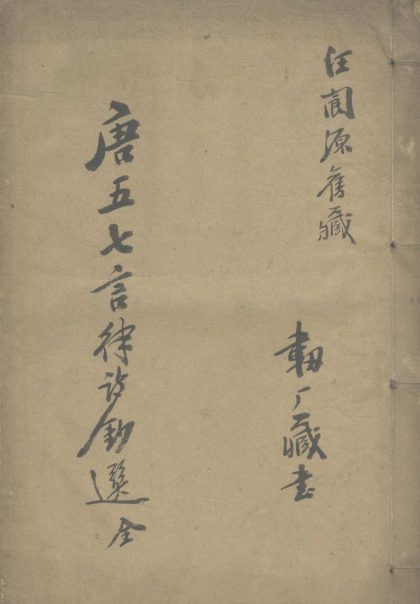 汪閬源舊藏
韌厂藏書
唐五七言律詩鈔選 全